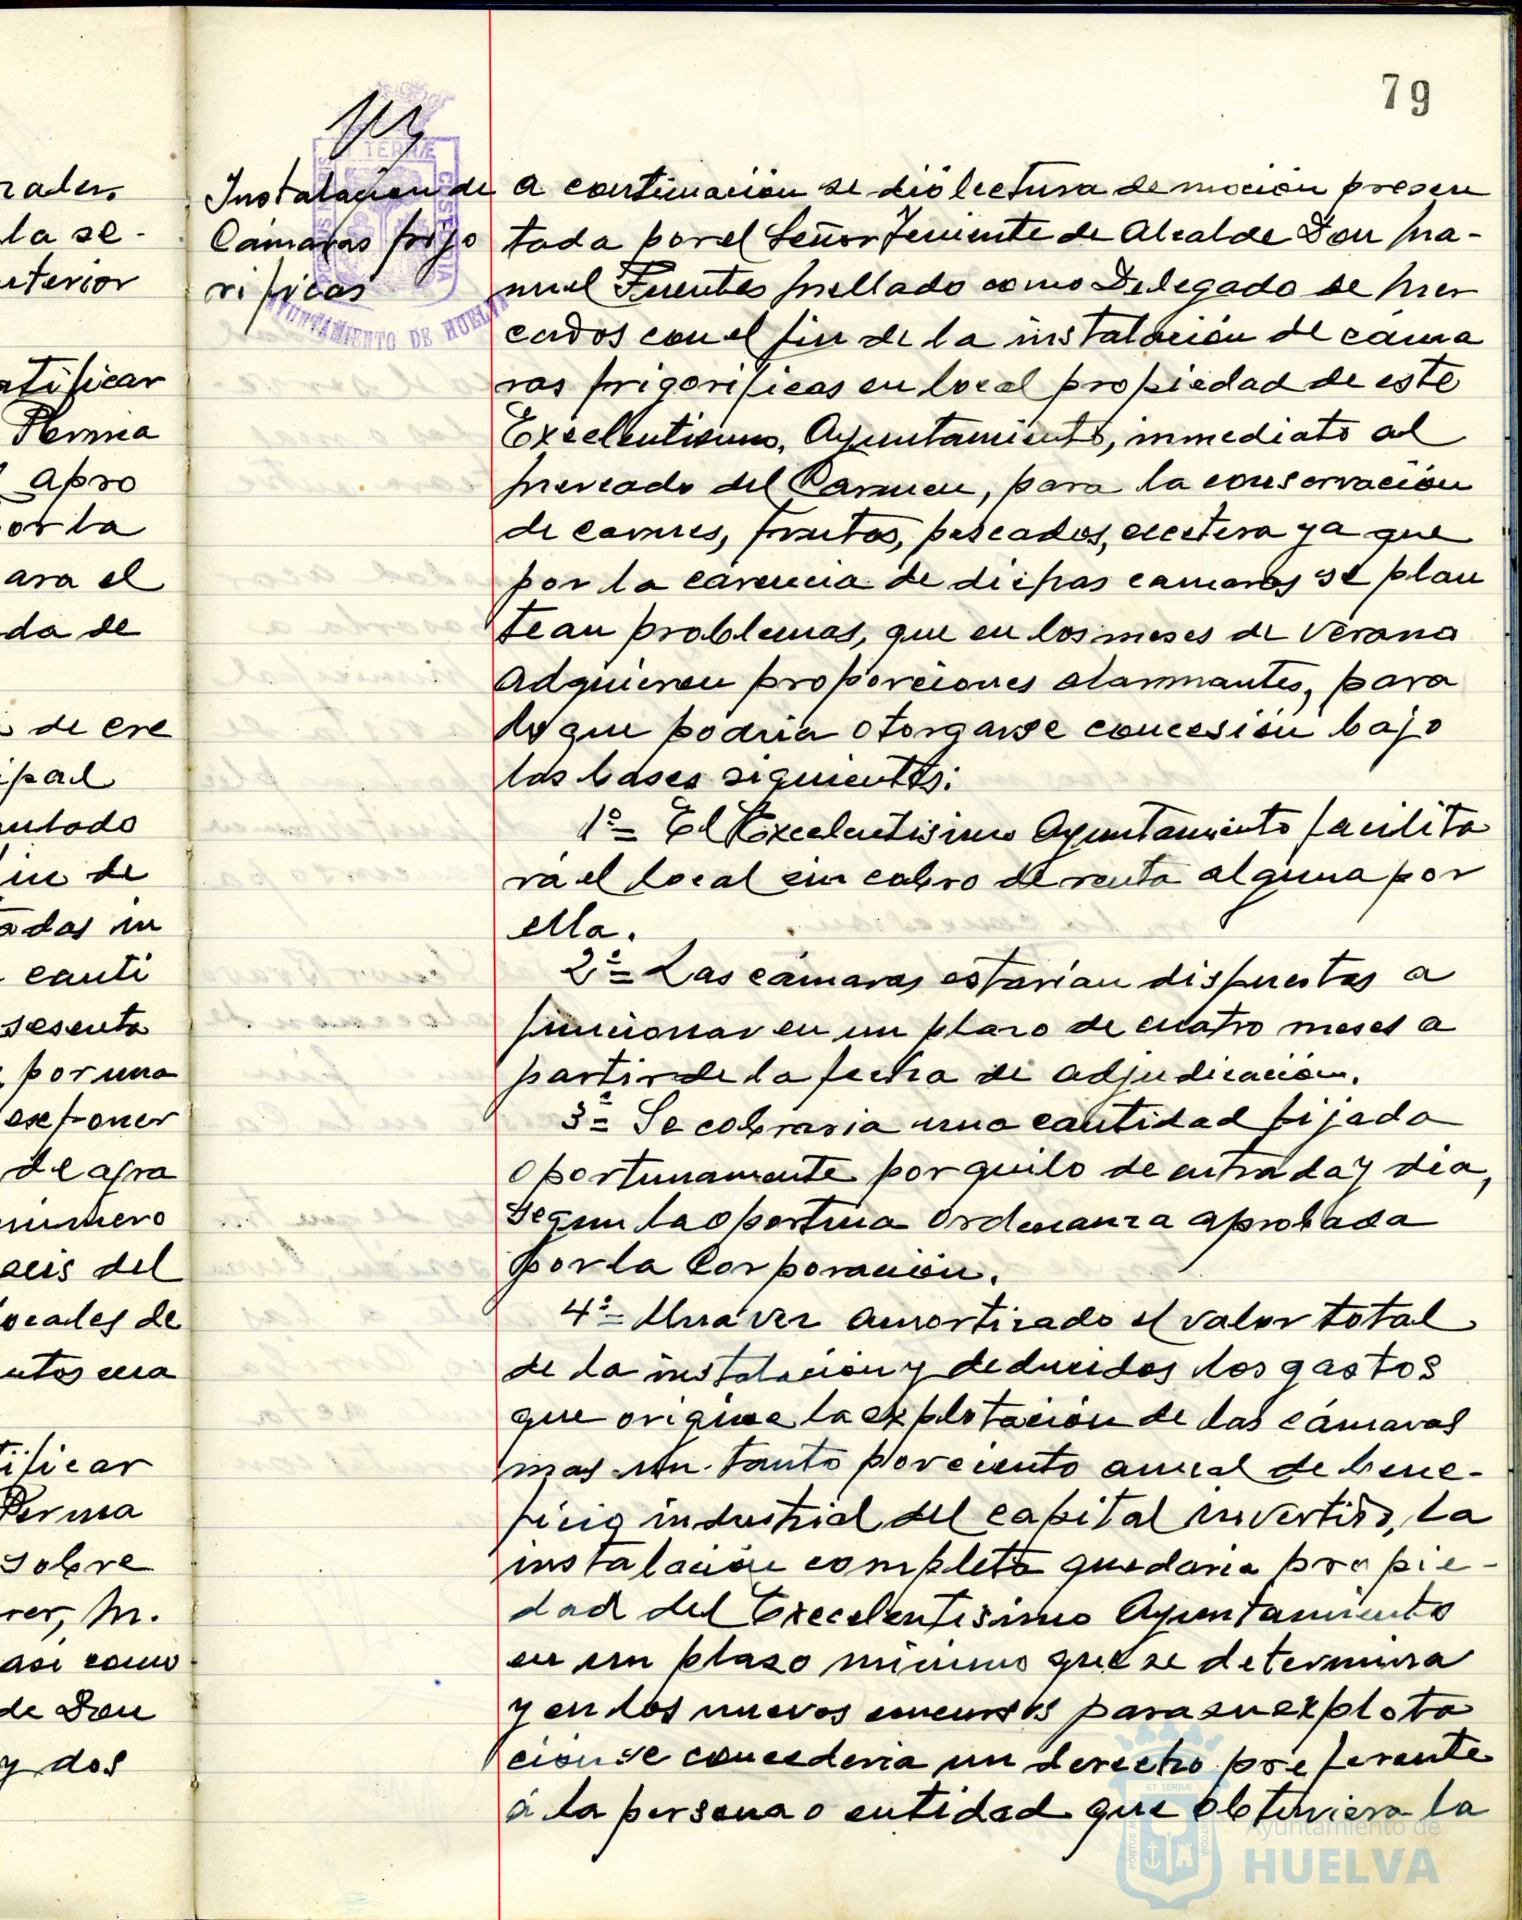 79
rales.
la se-
nterior
atificar
Perma
apro
or la
ara el
da de
de cre
ipal
ulado
in de
adas in
canti
sesenta
por una
exponer
de agra
número
seis del
locales de
utos cua
tificar
Perma
sobre
rer, M.
asi como
de Don
y dos
Instalación de
Cámaras frigo
rificas
PORTUS MARIS ET TERRÆ CUSTODIA
AYUNTAMIENTO DE HUELVA
a continuación se dió lectura de moción presen
tada por el Señor Teniente de Alcalde Don Ma-
nuel Fuentes Mellado como Delegado de Mer
cados con el fin de la instalación de cáma
ras frigorificas en local propiedad de este
Excelentisimo, Ayuntamiento, inmediato al
Mercado del Carmen, para la conservación
de carnes, frutas, pescados, ecetera ya que
por la carencia de dichas camaras se plan
tean problemas, que en los meses de verano
adquieren proporciones alarmantes, para
lo que podria otorgarse concesión bajo
las bases siguientes:
1º= El Excelentisimo Ayuntamiento facilita
rá el local sin cobro de renta alguna por
ella.
2ª= Las cámaras estarian dispuestas a
funcionar en un plazo de cuatro meses a
partir de la fecha de adjudicación.
3ª= Se cobraria una cantidad fijada
oportunamente por quilo de entrada y dia,
segun la oportuna Ordenanza aprobada
por la Corporación.
4ª= Una vez amortizado el valor total
de la instalación y deducidos los gastos
que origine la explotación de las cámaras
mas un tanto por ciento anual de bene-
ficio industrial del capital invertido, la
instalación completa quedaria propie-
dad del Excelentisimo Ayuntamiento
en un plazo minimo que se determina
y en los nuevos concursos para su explota
ción se concederia un derecho preferente
á la persona o entidad que obtuviera la
Ayuntamiento de
HUELVA